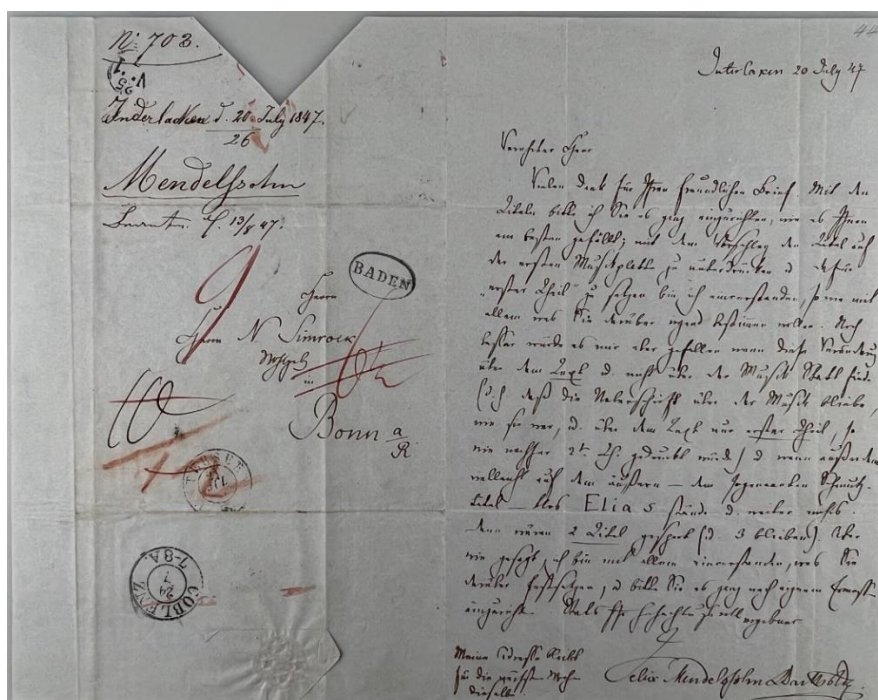 N: 703.
Inderlacken d. 20 July 1847.
26
Mendelssohn
13/8 47.
BADEN
Herrn
Herrn N. Simrock
in
Bonn a/R
COBLENZ
24
7
7-8A
44
Interlaken 20 July 47
Verehrter Herr
Vielen Dank für Ihren freundlichen Brief. Mit den
Titeln bitte ich Sie es ganz einzurichten, wie es Ihnen
am besten gefällt; mit dem Vorschlag den Titel auf
der ersten Musikplatte zu unterdrücken u. dafür
"erster Theil" zu setzen bin ich einverstanden, so wie mit
allem was Sie darüber irgend bestimmen wollen. Noch
besser würde es mir aber gefallen wenn diese Veränderung
über dem Text u. nicht über der Musik Statt fände
(d. h. daß die Ueberschrift über der Musik bliebe,
wie sie war, u. über dem Text nur erster Theil, so
wie nachher 2t. Th. gedruckt würde) u. wenn außerdem
vielleicht auf dem äußern — dem sogenannten Schmutz-
titel — blos Elias stände u. weiter nichts.
Dann wären 2 Titel gespart (u. 3 blieben). Aber
wie gesagt, ich bin mit allem einverstanden, was Sie
darüber festsetzen, u. bitte Sie es ganz nach eignem Ermessen
einzurichten. Stets Ihr hochachtungsvoll ergebner
Felix Mendelssohn Bartholdy
Meine Adresse bleibt
für die nächsten Wochen
dieselbe